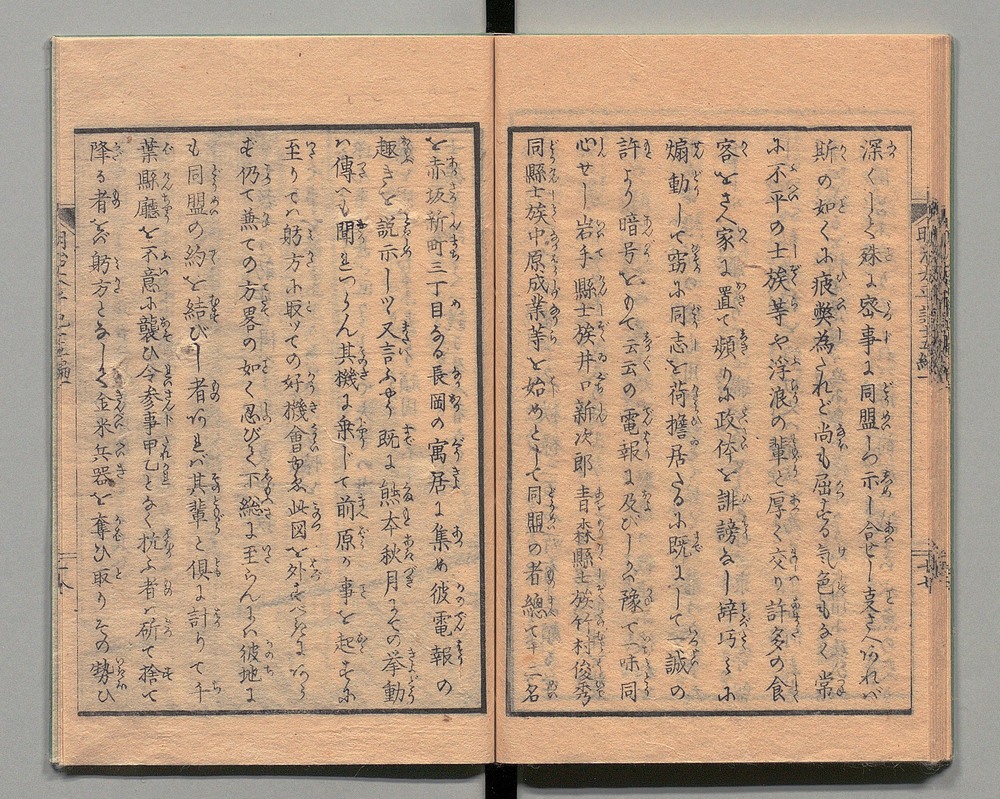 深くしく殊に密事に同盟しつ示し合せし事さへ有れバ
斯の如くに疲弊為たれど尚も屈する気色もなく常
に不平の士族等や浮浪の輩と厚く交り許多の食
客をさへ家に置て頻りに政体を誹謗なし辞巧みに
煽動して窃に同志を荷擔居たるに既にして一誠の
許より暗号をもて云云の電報に及びしかバ豫て一味同
心せし岩手縣士族井口新次郎青森縣士族竹村俊秀
同縣士族中原成業等を始めとして同盟の者總て十二名
を赤坂新町三丁目なる長岡の寓居に集め彼電報の
趣きを説示しツヽ又言ふやう既に熊本秋月にその挙動
ハ傳へも聞れつらん其機に乗じて前原が事を起すに
至りてハ躬方に取ツての好機會此図を外すべきにあら
ず仍て兼ての方畧の如く忍びて下総に至らんにハ彼地に
も同盟の約を結びし者あれバ其輩と倶に計りて千
葉縣廳を不意に襲ひ令参事甲乙となく抗ふ者ハ斫て捨て
降る者をバ躬方となしく金米兵器を奪ひ取りその勢ひ